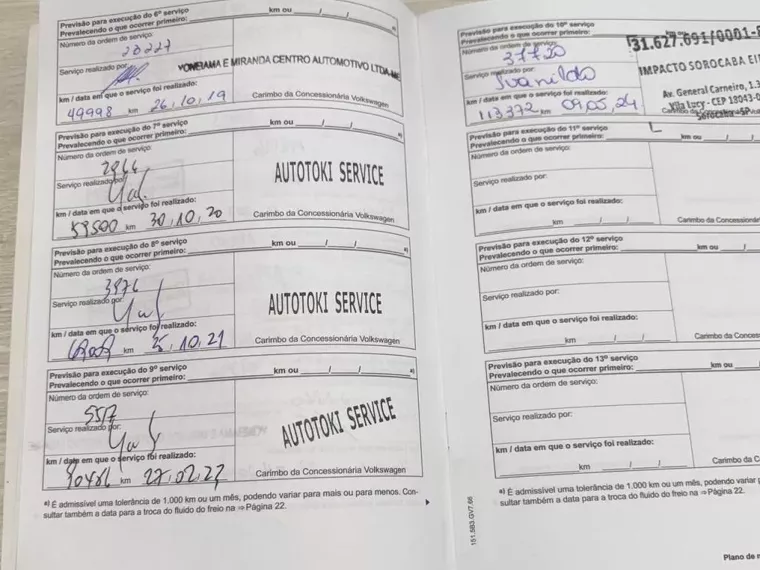 Previsão para execução do 6º serviço
Prevalecendo o que ocorrer primeiro: km ou / /
Número da ordem de serviço:
20227
Serviço realizado por:
YONEIAMA E MIRANDA CENTRO AUTOMOTIVO LTDA-ME
km / data em que o serviço foi realizado:
49998 km 26, 10, 19
Carimbo da Concessionária Volkswagen
Previsão para execução do 7º serviço
Prevalecendo o que ocorrer primeiro: km ou / / a)
Número da ordem de serviço:
Serviço realizado por:
AUTOTOKI SERVICE
km / data em que o serviço foi realizado:
59500 km 30, 10, 20
Carimbo da Concessionária Volkswagen
Previsão para execução do 8º serviço
Prevalecendo o que ocorrer primeiro: km ou / / a)
Número da ordem de serviço:
3976
Serviço realizado por:
AUTOTOKI SERVICE
km / data em que o serviço foi realizado:
km 25, 10, 21
Carimbo da Concessionária Volkswagen
Previsão para execução do 9º serviço
Prevalecendo o que ocorrer primeiro: km ou / / a)
Número da ordem de serviço:
5517
Serviço realizado por:
AUTOTOKI SERVICE
km / data em que o serviço foi realizado:
km
Carimbo da Concessionária Volkswagen
a) É admissível uma tolerância de 1.000 km ou um mês, podendo variar para mais ou para menos. Con-
sultar também a data para a troca do fluido do freio na ⇒ Página 22.
Previsão para execução do 10º serviço
Prevalecendo o que ocorrer primeiro:
Número da ordem de serviço:
37720
31.627.691/0001-
Serviço realizado por:
Ivanildo
IMPACTO SOROCABA
km / data em que o serviço foi realizado:
113372 km 09,05,24
Av. General Carneiro, 1.3
Vila Lucy - CEP 18043-0
Sorocaba-SP
Previsão para execução do 11º serviço
Prevalecendo o que ocorrer primeiro: km ou / /
Número da ordem de serviço:
Serviço realizado por:
km / data em que o serviço foi realizado:
km / /
Carimbo da Concessionária
Previsão para execução do 12º serviço
Prevalecendo o que ocorrer primeiro: km ou /
Número da ordem de serviço:
Serviço realizado por:
km / data em que o serviço foi realizado:
km / /
Carimbo da Concession
Previsão para execução do 13º serviço
Prevalecendo o que ocorrer primeiro: km ou /
Número da ordem de serviço:
Serviço realizado por:
km / data em que o serviço foi realizado:
km / /
Carimbo da C
a) É admissível uma tolerância de 1.000 km ou um mês, podendo variar p
sultar também a data para a troca do fluido do freio na ⇒ Página 22.
151.5B3.GV7.66
Plano de m